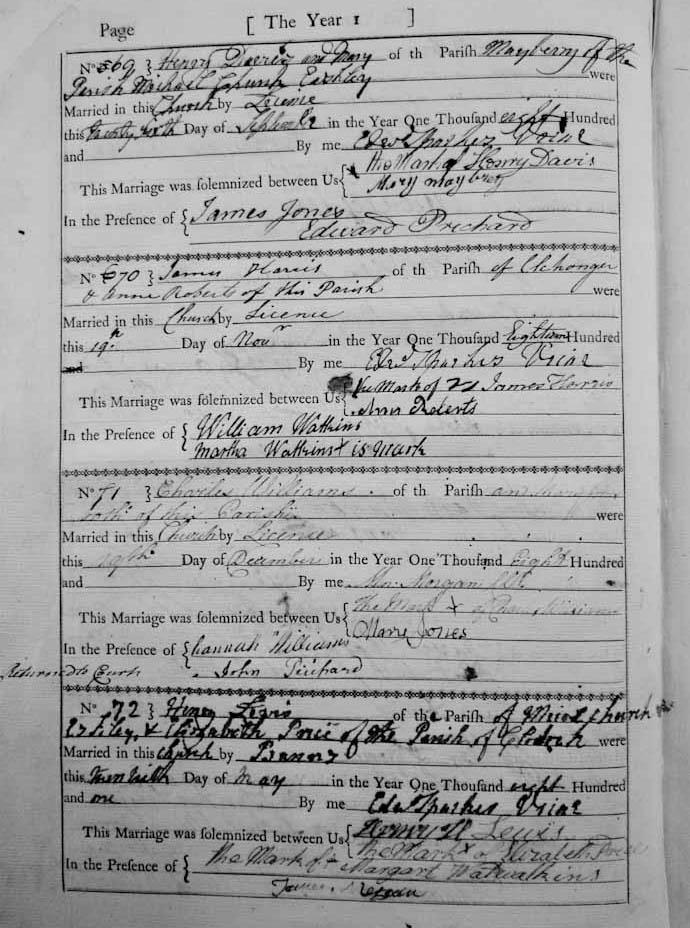 Page [ The Year 1 ]
No 569 } Henry and Mary of th Parish Mayberry of the
Parish Michael Church Eschley were
Married in this Church by Licence
this twenty sixth Day of in the Year One Thousand eight Hundred
and By me Edwd Sparkes Vicar
This Marriage was solemnized between Us { the Mark of Henry Davis
Mary maybrey
In the Presence of { James Jones
Edward Prichard
No 670 } James Harris of th Parish of Clehonger
& Anne Roberts of this Parish were
Married in this Church by Licence
this 19th Day of Novr in the Year One Thousand Eighteen Hundred
and By me Edwd Sparkes Vicar
This Marriage was solemnized between Us { the Mark of James Harris
Ann Roberts
In the Presence of { William Watkins
Martha Watkins x is Mark
No 71 } Charles Williams of th Parish
both of this Parish were
Married in this Church by Licence
this 19th Day of December in the Year One Thousand Eight Hundred
and By me Morgan
This Marriage was solemnized between Us { The Mark x of Williams
Mary Jones
In the Presence of { hannah Williams
Returned to Court John Prichard
No 72 } Henry Lewis of the Parish of church
& Elizabeth Price of the Parish of Clodock were
Married in this church by Banns
this twentieth Day of May in the Year One Thousand eight Hundred
and one By me Edwd Sparkes Vicar
This Marriage was solemnized between Us { Henry Lewis
The Mark x of Elizabeth Price
In the Presence of { the Mark of Margart Watwatkins